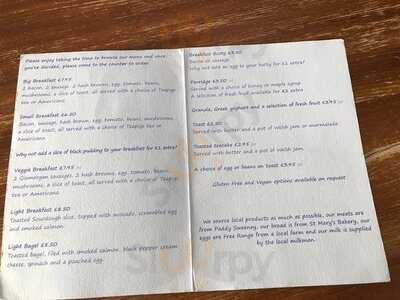 Please enjoy taking the time to browse our menu and once
you're decided, please come to the counter to order.
Big Breakfast £7.95
2 bacon, 2 sausage, 2 hash brown, egg, tomato, beans,
mushrooms, a slice of toast, all served with a choice of Teapigs
tea or Americano.
Small Breakfast £6.50
Bacon, sausage, hash brown, egg, tomato, beans, mushrooms,
a slice of toast, all served with a choice of Teapigs tea or
Americano.
Why not add a slice of black pudding to your breakfast for £1 extra?
Veggie Breakfast £7.95
2 Glamorgan sausages, 2 hash browns, egg, tomato, beans,
mushrooms, a slice of toast, all served with a choice of Teapigs
tea or Americano.
Light Breakfast £8.50
Toasted Sourdough slice, topped with avocado, scrambled egg
and smoked salmon.
Light Bagel £8.50
Toasted bagel, filled with smoked salmon, black pepper cream
cheese, spinach and a poached egg.
Breakfast Butty £3.50
Bacon or sausage
Why not add an egg to your butty for £1 extra?
Porridge £3.50
Served with a choice of honey or maple syrup
A selection of fresh fruit available for £1 extra
Granola, Greek yoghurt and a selection of fresh fruit £3.95
Toast £2.50
Served with butter and a pot of Welsh jam or marmalade
Toasted teacake £2.95
Served with butter and a pot of Welsh jam.
A choice of egg or beans on toast £3.95
Gluten Free and Vegan options available on request
We source local products as much as possible, our meats are
from Paddy Sweeney, our bread is from St Mary's Bakery, our
eggs are Free Range from a local farm and our milk is supplied
by the local milkman.